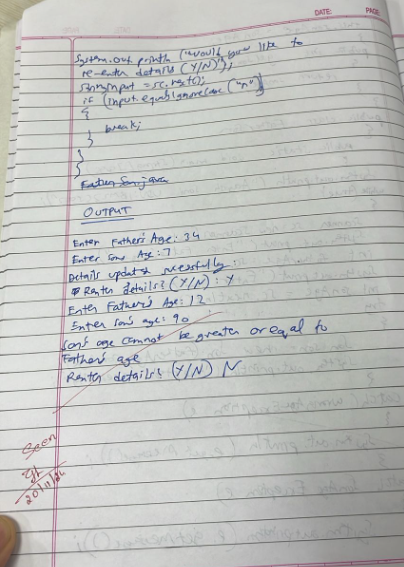 DATE: PAGE:
System.out.println ("would you like to
re-enter details (Y/N)");
input = sc.next();
if (input.equalsIgnorecase ("n"))
{
break;
}
}
}
OUTPUT
Enter Father's Age: 34
Enter Sons Age: 7
Details updated successfully.
Renter details? (Y/N): Y
Enter Father's Age: 12
Enter Son's age: 90
Son's age cannot be greater or equal to
Father's age
Renter details? (Y/N) N
Seen
20/11/24